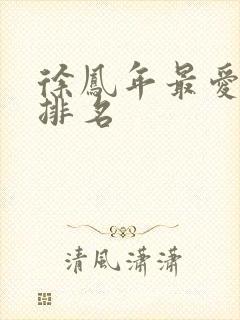 徐鳳年最愛
排名
清風瀟瀟